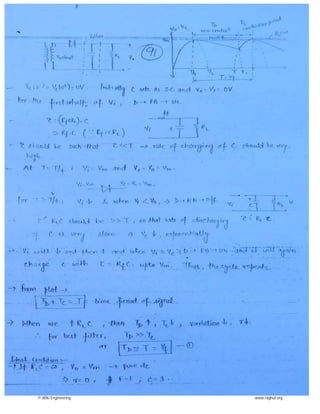 filter
Vmsinωt
RL
Vo
91
TD
non-conduct
Tc
conduction period
T = 1/f
→ Vc(0⁻) = Vc(0⁺) = 0V Initially C acts as SC and Vc = Vo = 0V.
→ For the first quarter of Vi, D → FB → ON.
→ τ = (Rf||RL).C
≈ Rf C (∵ Rf << RL)
→ τ should be such that τ << T → rate of charging of C should be very
high.
→ At T = T/4 : Vi = Vm and Vc = Vo = Vm.
Vi = Vm
Vo = Vc = Vm.
for t > T/4, Vi ↓ & when Vi < Vc, → D → RB → OFF.
τ = RL C
→ τ = RLC should be >> T, so that rate of discharging
of C is very slow & Vc ↓ exponentially.
→ Vi will ↓ and then ↑ and when Vi ≥ Vc, D → FB → ON and it will again
charge C with τ = Rf C upto Vm. Thus, the cycle repeats.
→ From plot →
TD + TC = T time period of signal.
→ When we ↑ RLC, then TD ↑, Tc ↓, variation ↓, r ↓.
∴ For best filter, TD >> Tc
or TD ≈ T = 1/f — ①
Ideal Condition:-
→ If RLC = ∞, Vo = Vm → pure dc
⇒ r = 0,
© IBNi Engineering
www.raghul.org